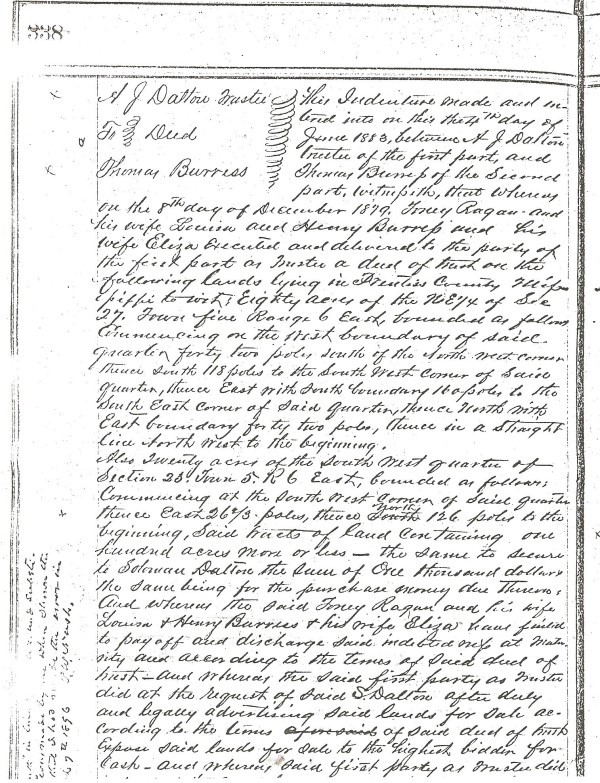 338
A J Dalton Trustee
To Deed
Thomas Burress
This Indenture made and en-
tered into on this the 4th day of
June 1883, between A J Dalton
trustee of the first part, and
Thomas Burress of the Second
part, Witnesseth, that Whereas
on the 8th day of December 1879. Toney Ragan and
his wife Louisa and Henry Burress and his
wife Eliza executed and delivered to the party of
the first part as Trustee a deed of trust on the
following lands lying in Prentiss County Miss
issippi to wit; Eighty acres of the NE 1/4 of Sec
27. Town five Range 6 East, bounded as follows
Commencing on the West boundary of said
quarter forty two poles south of the North West corner
thence South 118 poles to the South West corner of Said
quarter, thence East with South boundary 160 poles to the
South East corner of Said quarter, thence North with
East boundary forty two poles, thence in a straight
line North West to the beginning.
Also Twenty acres of the South West quarter of
Section 23 Town 5 R 6 East, bounded as follows:
Commencing at the South West corner of said quarter
thence East 26 2/3 poles, thence North 126 poles to the
beginning, Said tracts of land containing one
hundred acres more or less — the same to secure
to Soloman Dalton the sum of One thousand dollars
the same being for the purchase money due thereon:
And whereas the said Toney Ragan and his wife
Louisa & Henry Burress & his wife Eliza have failed
to pay off and discharge said indebtedness at matu-
rity and according to the terms of said deed of
trust — and whereas the said first party as trustee
did at the request of said S. Dalton after duly
and legally advertising said lands for sale ac-
cording to the terms of said deed of trust
Expose said lands for sale to the highest bidder for
Cash — and whereas said first party as trustee did